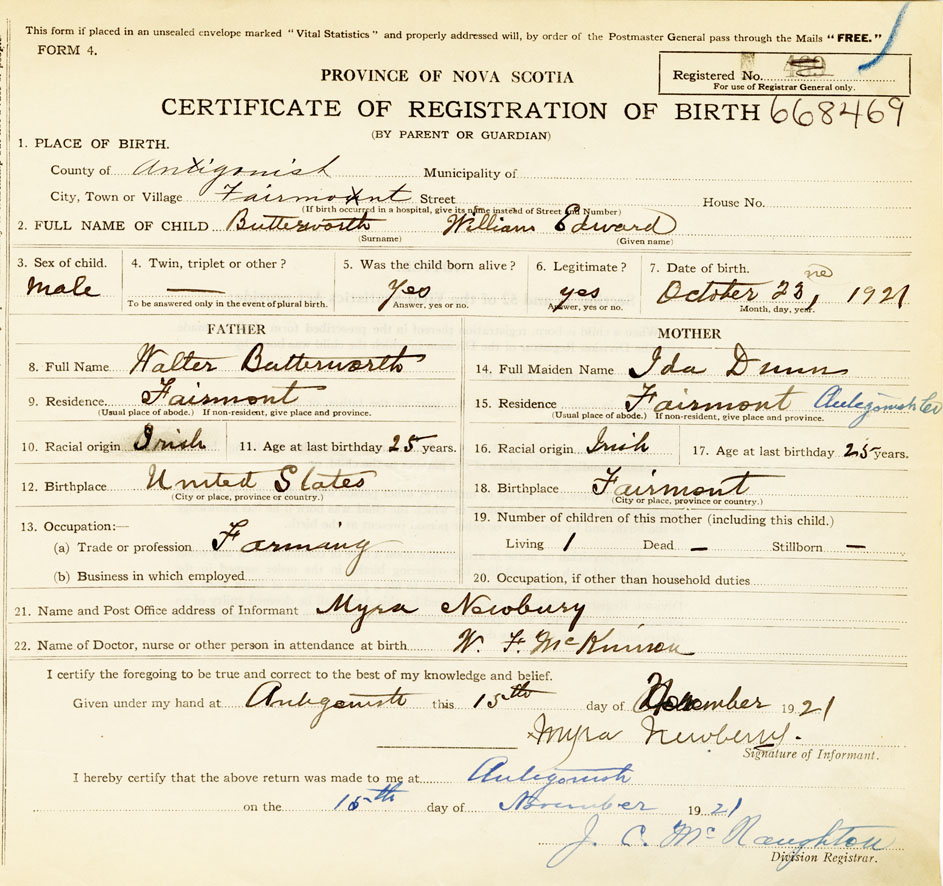 This form if placed in an unsealed envelope marked "Vital Statistics" and properly addressed will, by order of the Postmaster General pass through the Mails "FREE."
FORM 4.
PROVINCE OF NOVA SCOTIA
Registered No.
For use of Registrar General only.
CERTIFICATE OF REGISTRATION OF BIRTH 668469
(BY PARENT OR GUARDIAN)
1. PLACE OF BIRTH.
County of Antigonish Municipality of
City, Town or Village Fairmont Street House No.
(If birth occurred in a hospital, give its name instead of Street and Number)
2. FULL NAME OF CHILD Butterworth William Edward
(Surname) (Given name)
3. Sex of child. 4. Twin, triplet or other? 5. Was the child born alive? 6. Legitimate? 7. Date of birth.
Male — Yes yes October 23, 1921
To be answered only in the event of plural birth. Answer, yes or no. Answer, yes or no. Month, day, year.
FATHER
8. Full Name Walter Butterworth
9. Residence Fairmont
(Usual place of abode.) If non-resident, give place and province.
10. Racial origin Irish 11. Age at last birthday 25 years.
12. Birthplace United States
(City or place, province or country.)
13. Occupation:—
(a) Trade or profession Farming
(b) Business in which employed
MOTHER
14. Full Maiden Name Ida Dunn
15. Residence Fairmont Antigonish Co
(Usual place of abode.) If non-resident, give place and province.
16. Racial origin Irish 17. Age at last birthday 25 years.
18. Birthplace Fairmont
(City or place, province or country.)
19. Number of children of this mother (including this child.)
Living 1 Dead — Stillborn —
20. Occupation, if other than household duties
21. Name and Post Office address of Informant Myra Newbury
22. Name of Doctor, nurse or other person in attendance at birth W. F. McKinnon
I certify the foregoing to be true and correct to the best of my knowledge and belief.
Given under my hand at Antigonish this 15th day of November 1921
Myra Newberry.
Signature of Informant.
I hereby certify that the above return was made to me at Antigonish
on the 15th day of November 1921
J. C. McNaughton
Division Registrar.